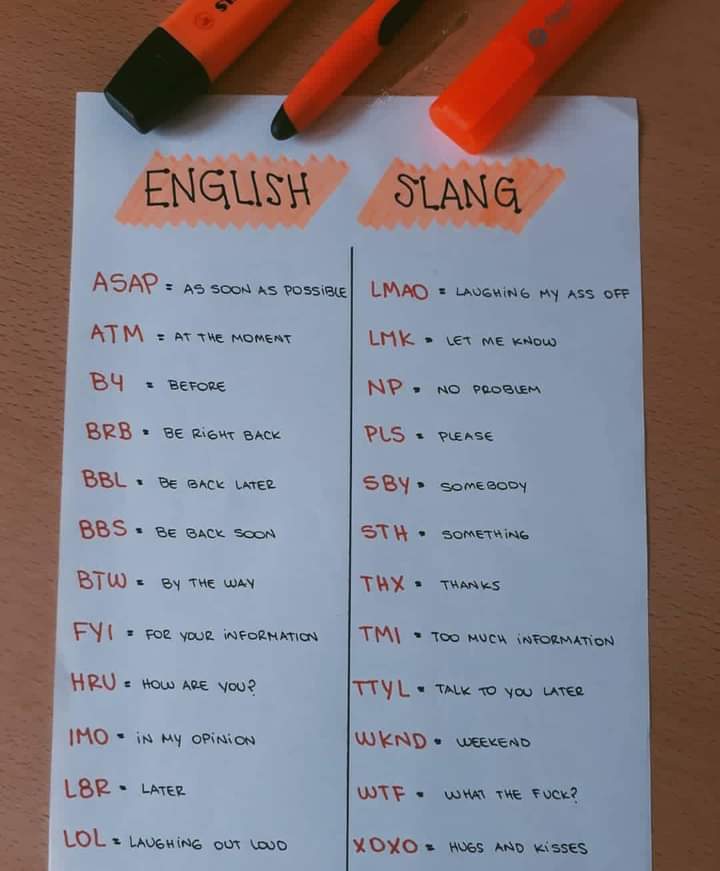 ENGLISH SLANG
ASAP = AS SOON AS POSSIBLE
ATM = AT THE MOMENT
B4 = BEFORE
BRB = BE RIGHT BACK
BBL = BE BACK LATER
BBS = BE BACK SOON
BTW = BY THE WAY
FYI = FOR YOUR INFORMATION
HRU = HOW ARE YOU?
IMO = IN MY OPINION
L8R = LATER
LOL = LAUGHING OUT LOUD
LMAO = LAUGHING MY ASS OFF
LMK = LET ME KNOW
NP = NO PROBLEM
PLS = PLEASE
SBY = SOMEBODY
STH = SOMETHING
THX = THANKS
TMI = TOO MUCH INFORMATION
TTYL = TALK TO YOU LATER
WKND = WEEKEND
WTF = WHAT THE FUCK?
XOXO = HUGS AND KISSES